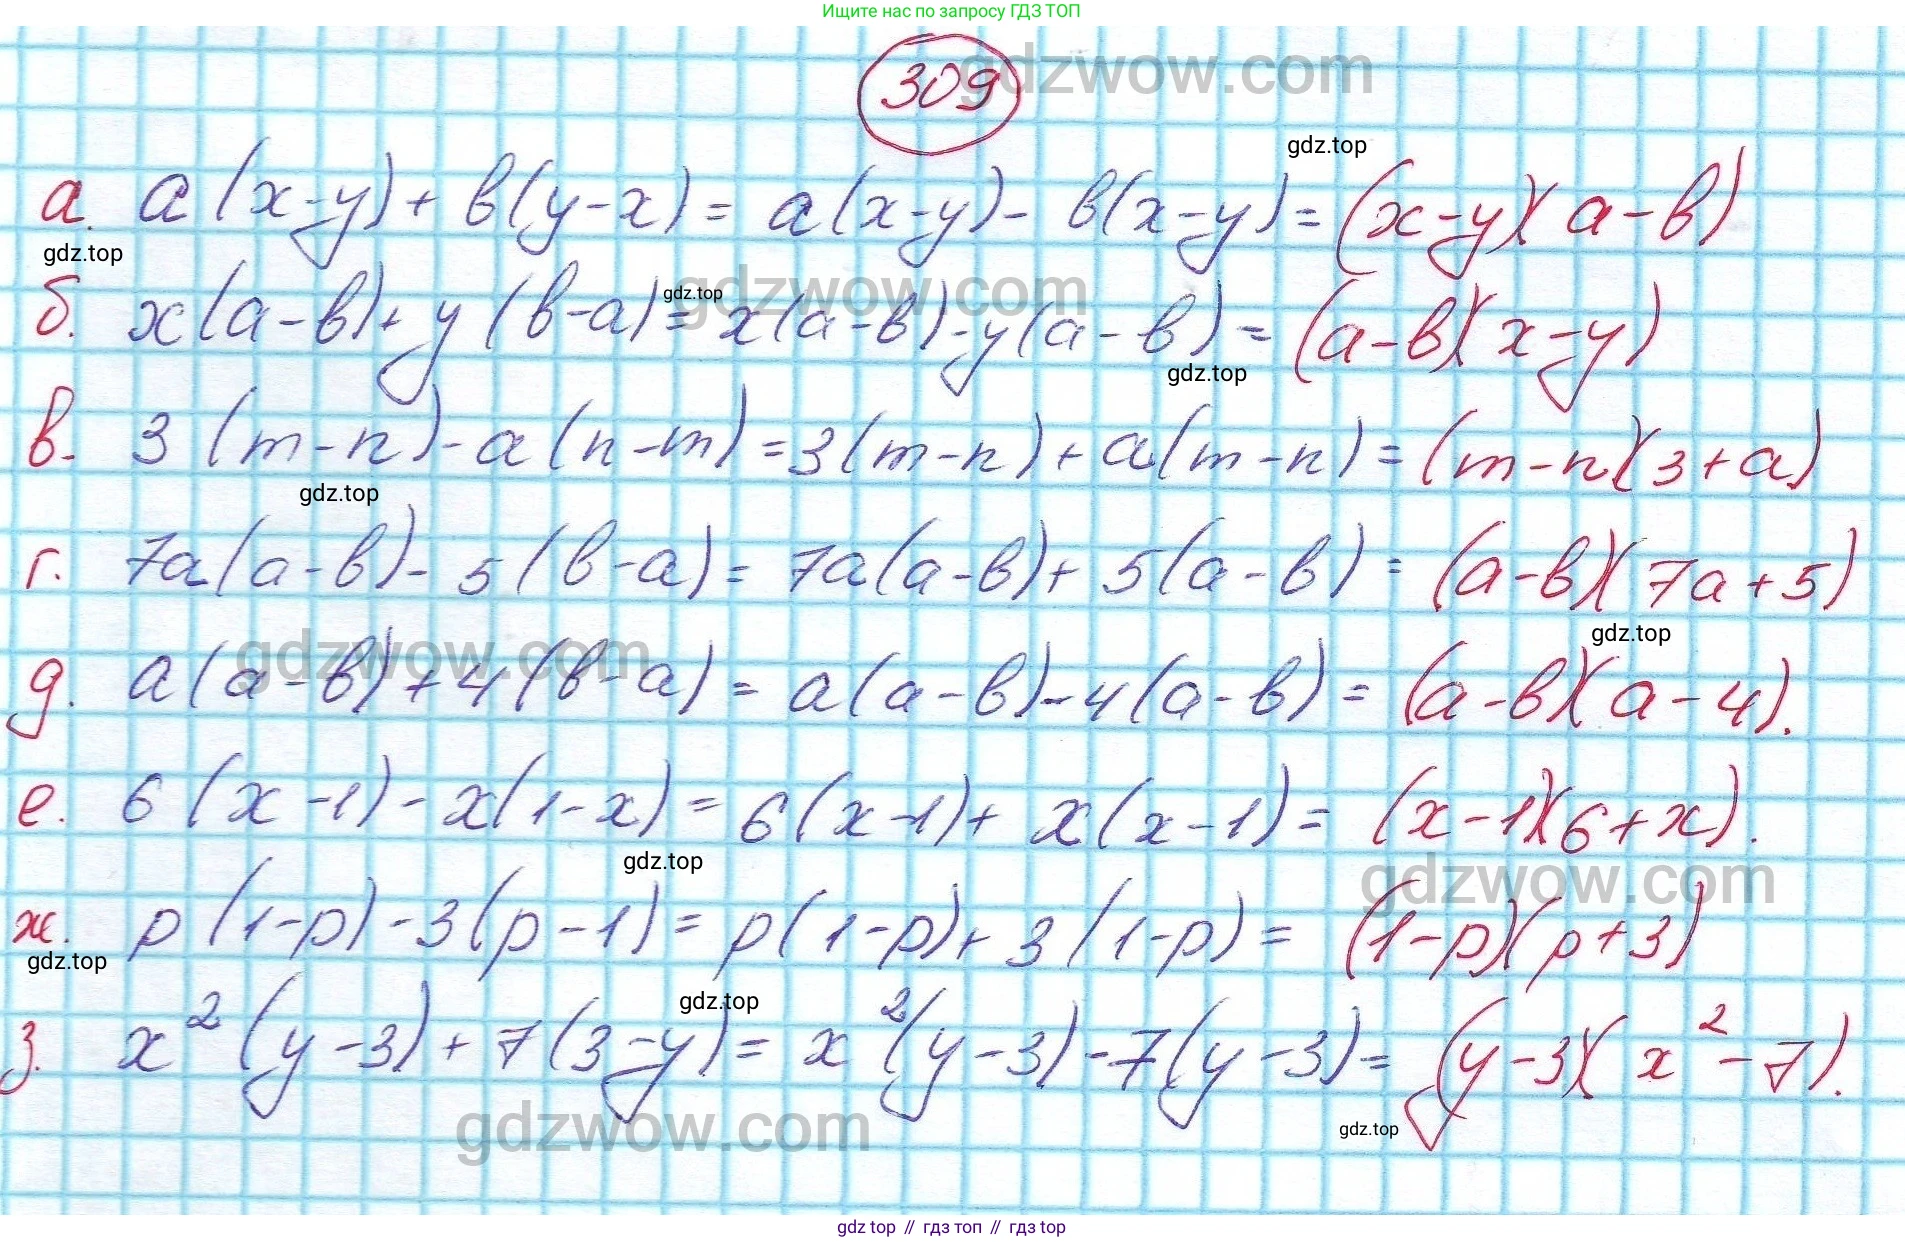 Ищите нас по запросу ГДЗ ТОП
309
gdzwow.com
gdz.top
а. a(x-y)+b(y-x)=a(x-y)-b(x-y)=(x-y)(a-b)
gdz.top
gdzwow.com
gdz.top
б. x(a-b)+y(b-a)=x(a-b)-y(a-b)=(a-b)(x-y)
gdz.top
в. 3(m-n)-a(n-m)=3(m-n)+a(m-n)=(m-n)(3+a)
gdz.top
г. 7a(a-b)-5(b-a)=7a(a-b)+5(a-b)=(a-b)(7a+5)
gdz.top
gdzwow.com
д. a(a-b)+4(b-a)=a(a-b)-4(a-b)=(a-b)(a-4).
е. 6(x-1)-x(1-x)=6(x-1)+x(x-1)=(x-1)(6+x).
gdz.top
gdzwow.com
ж. p(1-p)-3(p-1)=p(1-p)+3(1-p)=(1-p)(p+3)
gdz.top
gdz.top
з. x²(y-3)+7(3-y)=x²(y-3)-7(y-3)=(y-3)(x²-7).
gdzwow.com
gdz.top
gdz top // гдз топ // gdz top